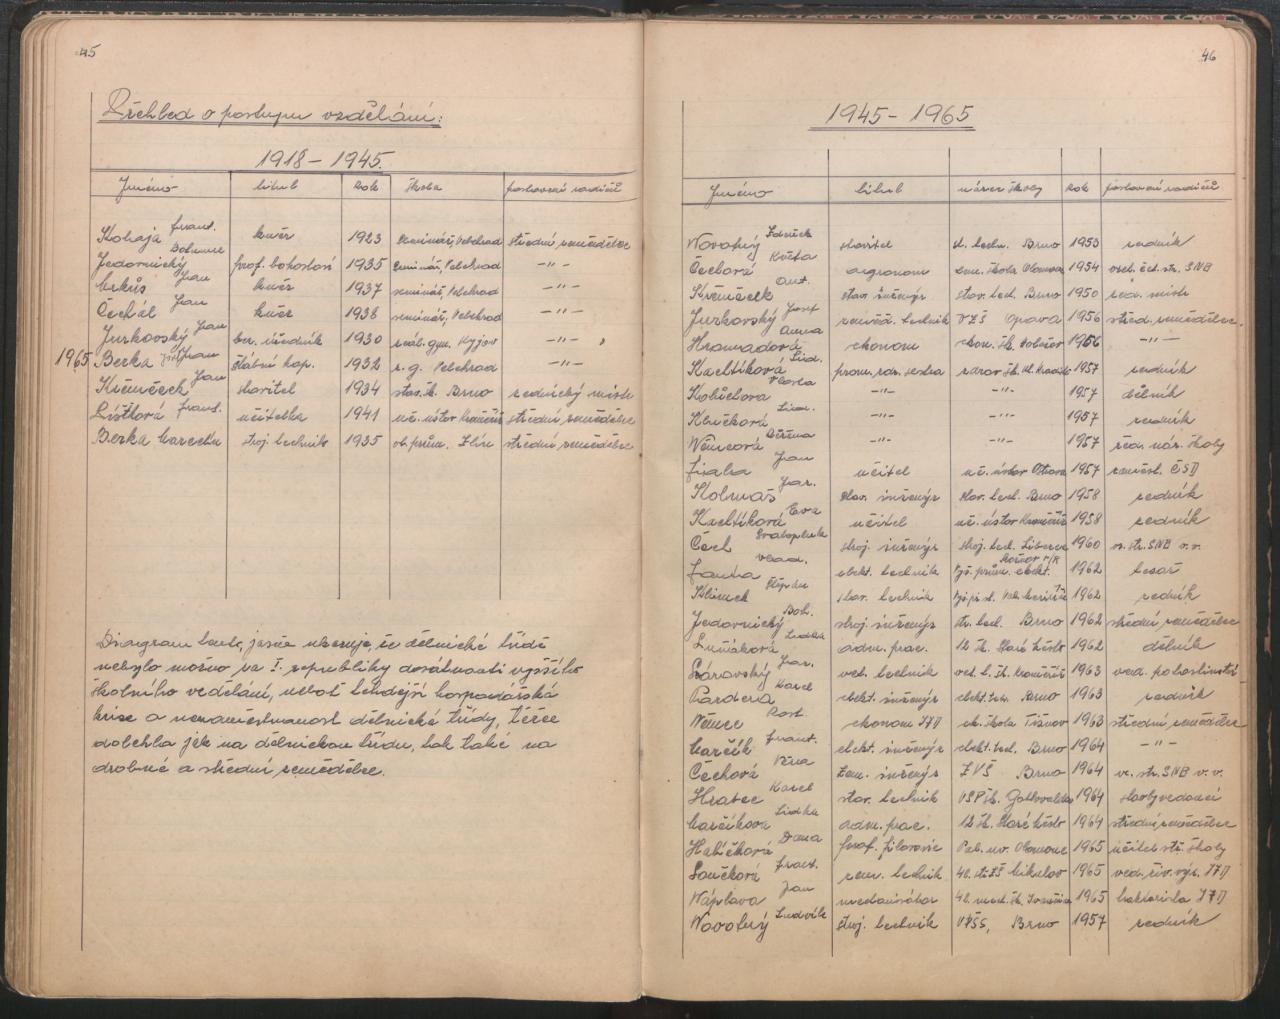 45
Přehled o postupu vzdělání:
1918 – 1945.
Jméno titul Rok škola postavení rodičů
Kohaja Frant. kněz 1923 seminář, Velehrad střední zemědělec
Jedovnický Bohumír prof. bohosloví 1935 seminář, Velehrad –"–
Jan kněz 1937 seminář, Velehrad –"–
Čechál Jan kněz 1938 seminář, Velehrad –"–
Jurkovský Jan ber. úředník 1930 reál. gym. Kyjov –"–
1965 Berka Jan štábní kap. 1932 r. g. Velehrad –"–
Křeměček Jan stavitel 1934 stav. š. Brno zednický mistr
Frant. učitelka 1941 uč. ústav Kroměříž střední zemědělec
Berka stroj. technik 1935 ob. prům. Zlín střední zemědělec
Diagram tento, jasně ukazuje, že dělnické třídě
nebylo možno za I. republiky dosáhnouti vyššího
školního vzdělání, neboť tehdejší hospodářská
krise a nezaměstnanost dělnické třídy, těžce
dolehla jak na dělnickou třídu, tak také na
drobné a střední zemědělce.
46
1945 – 1965
Jméno titul název školy rok postavení rodičů
Novotný Zdeněk stavitel st. techn. Brno 1953 zedník
Čechová Květa agronom zem. škola Olomouc 1954 SNB
Křeměček Ant. stav. inženýr stav. tech. Brno 1950 zed. mistr
Jurkovský Josef zeměd. technik VZŠ Opava 1956 střed. zemědělec
Hromadová Anna ekonom ekon. šk. 1956 –"–
Kachtíková Lud. prom. zdr. sestra zdrav. šk. 1957 zedník
Vlasta –"– –"– 1957 dělník
Klučková Lud. –"– –"– 1957 zedník
Němcová Božena –"– –"– 1957 řed. nár. školy
Fiala Jan učitel uč. ústav Ostrava 1957 zaměst. ČSD
Kolmaš Jar. stav. inženýr stav. tech. Brno 1958 zedník
Kachtíková Eva učitel uč. ústav Kroměříž 1958 zedník
Čech Svatopluk stroj. inženýr stroj. tech. Liberec 1960 v. str. SNB v. v.
Janka Vlad. elekt. technik vyš. prům. elekt. 1962 tesař
Klimek Zbyněk stav. technik 1962 zedník
Jedovnický Boh. stroj. inženýr str. tech. Brno 1962 střední zemědělec
Luňáková Lidka adm. prac. 12 šk. Staré Město 1962 dělník
Jar. vet. technik vet. t. šk. Kroměříž 1963 ved. pohostinství
Pardera Karel elekt. inženýr elekt. tech. Brno 1963 zedník
Němec Rost. ekonom JZD ek. škola Tišnov 1963 střední zemědělec
Marčík Frant. elekt. inženýr elekt. tech. Brno 1964 –"–
Čechová Věra zem. inženýr ZVŠ Brno 1964 v. str. SNB v. v.
Hrabec Karel stav. technik VSP šk. Gottwaldov 1964 stavbyvedoucí
Marčíková Lidka adm. prac. 12 šk. Staré Město 1964 střední zemědělec
Habičková Dana prof. filozofie Pal. uv. Olomouc 1965 učitel stř. školy
Součková Frant. zem. technik Mikulov 1965 ved. živ. výr. JZD
Náplava Jan mechanizátor 1965 traktorista JZD
Novotný Ludvík stroj. technik VPŠS, Brno 1957 zedník